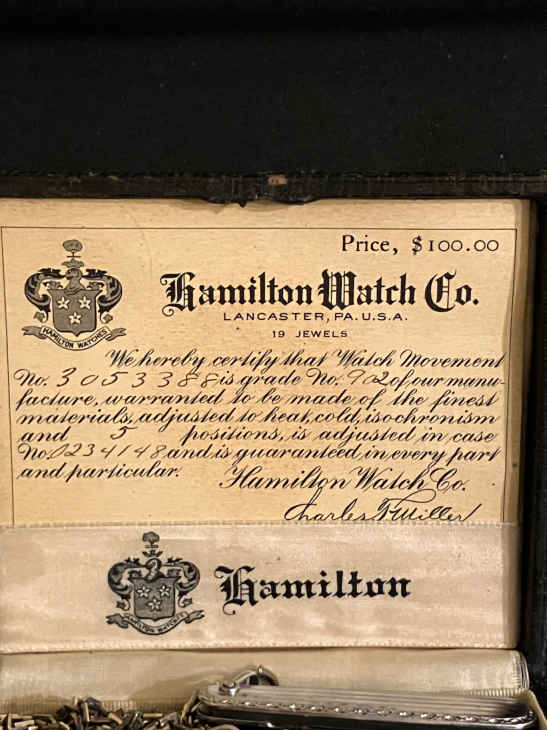 Price, $100.00
Hamilton Watch Co.
LANCASTER, PA. U.S.A.
19 JEWELS
HAMILTON WATCHES
We hereby certify that Watch Movement
No. 3053388 is grade No. 902 of our manu-
facture, warranted to be made of the finest
materials, adjusted to heat, cold, isochronism
and 5 positions, is adjusted in case
No. 0234148 and is guaranteed in every part
and particular.
Hamilton Watch Co.
Charles F Miller
Hamilton
HAMILTON WATCHES